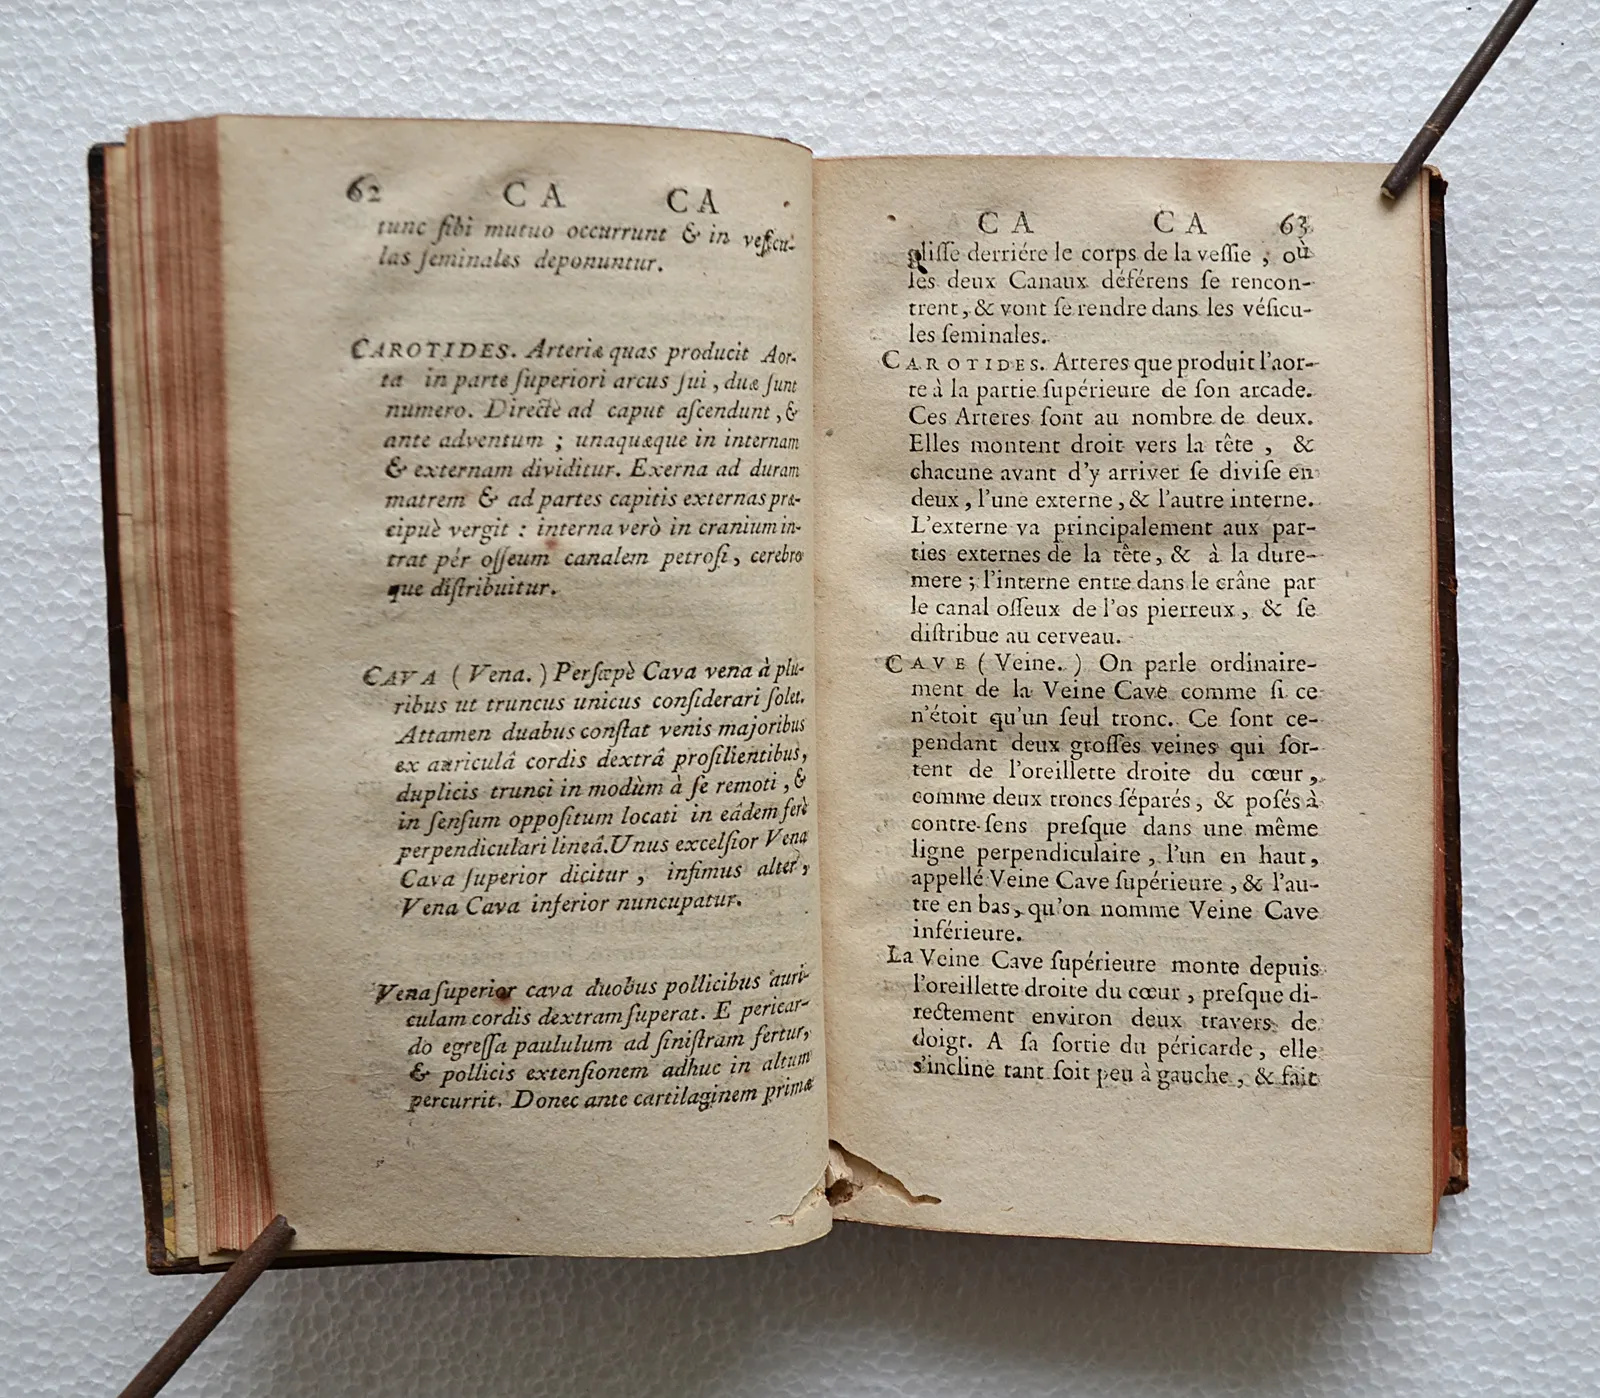 62 CA CA
tunc ſibi mutuo occurrunt & in veſicu-
las ſeminales deponuntur.
CAROTIDES. Arteriæ quas producit Aor-
ta in parte ſuperiori arcus ſui, duæ ſunt
numero. Directè ad caput aſcendunt, &
ante adventum ; unaquæque in internam
& externam dividitur. Exerna ad duram
matrem & ad partes capitis externas præ-
cipuè vergit : interna verò in cranium in-
trat pér oſſeum canalem petroſi, cerebro
que diſtribuitur.
CAVA (Vena.) Perſæpè Cava vena à plu-
ribus ut truncus unicus conſiderari ſolet.
Attamen duabus conſtat venis majoribus
ex auriculâ cordis dextrâ proſilientibus,
duplicis trunci in modùm à ſe remoti, &
in ſenſum oppoſitum locati in eâdem ferè
perpendiculari lineâ. Unus excelſior Vena
Cava ſuperior dicitur, infimus alter,
Vena Cava inferior nuncupatur.
Vena ſuperior cava duobus pollicibus auri-
culam cordis dextram ſuperat. E pericar-
do egreſſa paululum ad ſiniſtram fertur,
& pollicis extenſionem adhuc in altum
percurrit. Donec ante cartilaginem primæ
CA CA 63
gliſſe derriére le corps de la veſſie, où
les deux Canaux déférens ſe rencon-
trent, & vont ſe rendre dans les véſicu-
les ſeminales.
CAROTIDES. Arteres que produit l'aor-
te à la partie ſupérieure de ſon arcade.
Ces Arteres ſont au nombre de deux.
Elles montent droit vers la tête, &
chacune avant d'y arriver ſe diviſe en
deux, l'une externe, & l'autre interne.
L'externe va principalement aux par-
ties externes de la tête, & à la dure-
mere ; l'interne entre dans le crâne par
le canal oſſeux de l'os pierreux, & ſe
diſtribue au cerveau.
CAVE (Veine.) On parle ordinaire-
ment de la Veine Cave comme ſi ce
n'étoit qu'un ſeul tronc. Ce ſont ce-
pendant deux groſſes veines qui ſor-
tent de l'oreillette droite du cœur,
comme deux troncs ſéparés, & poſés à
contre-ſens preſque dans une même
ligne perpendiculaire, l'un en haut,
appellé Veine Cave ſupérieure, & l'au-
tre en bas, qu'on nomme Veine Cave
inférieure.
La Veine Cave ſupérieure monte depuis
l'oreillette droite du cœur, preſque di-
rectement environ deux travers de
doigt. A ſa ſortie du péricarde, elle
s'incline tant ſoit peu à gauche, & fait